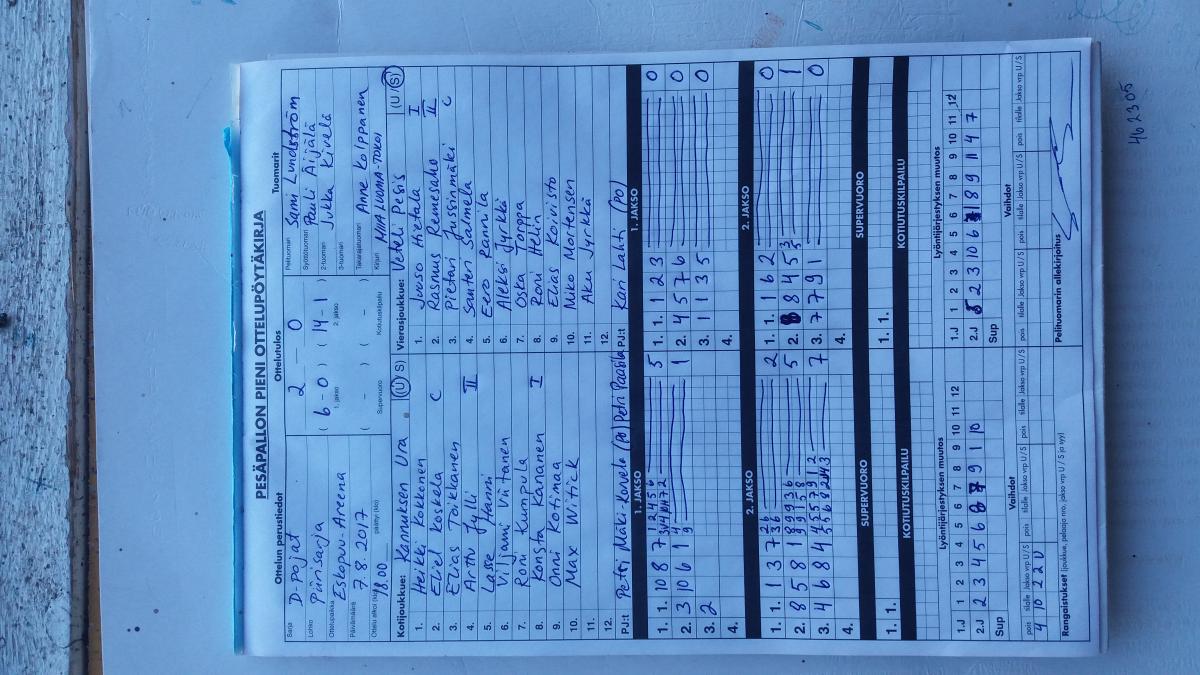 PESÄPALLON PIENI OTTELUPÖYTÄKIRJA
Ottelun perustiedot
Sarja D-pojat
Lohko
Ottelupaikka Eskopuu-Areena
Päivämäärä 7.8.2017
Ottelu alkoi (klo) 18.00 päättyi (klo)
Ottelutulos
2 - 0
( 6 - 0 ) ( 14 - 1 )
1. jakso 2. jakso
( - ) ( - )
Supervuoro Kotiutuskilpailu
Tuomarit
Pelituomari Sami Lundström
Syöttötuomari Pauli Äijälä
2-tuomari Jukka Kivelä
3-tuomari
Takarajatuomari Anne Kolppanen
Kirjuri NIINA TUOMA-TOKOI
Kotijoukkue: Kannuksen Ura (U S)
1. Heikki Kokkonen
2. Eliel Koskela C
3. Elias Toikkanen
4. Arttu Jylli II
5. Lasse Hannsi
6. Viljami Viitanen
7. Roni Kumpula
8. Konsta Kananen I
9. Onni Kotima
10. Max Witick
11.
12.
PJ:t Petri Mäki-Korvela (PO) Petri Paasila
Vierasjoukkue: Veteli Pesis (U S)
1. Juuso Hietala I
2. Rasmus Remesaho II
3. Pietari Jussinmäki C
4. Santeri Salmela
5. Eero Rannila
6. Aleksi Jyrkkä
7. Oska Torppa
8. Roni Helin
9. Elias Koivisto
10. Niko Mortensen
11. Aku Jyrkkä
12.
PJ:t Kari Lahti (PO)
1. JAKSO 1. JAKSO
1. 1. 10 8 7 5
2. 3 10 6 1 1
3. 2
4.
1. 1. 1 2 3 0
2. 4 5 7 6 0
3. 1 1 3 5 0
4.
2. JAKSO 2. JAKSO
1. 1. 1 3 7 2
2. 8 5 8 1 5
3. 4 6 8 4 7
4.
1. 1. 1 6 2 0
2. 8 8 4 5 1
3. 7 7 9 1 0
4.
SUPERVUORO SUPERVUORO
1. 1.
1. 1.
KOTIUTUSKILPAILU KOTIUTUSKILPAILU
Lyöntijärjestyksen muutos
1.J 1 2 3 4 5 6 7 8 9 10 11 12
2.J 2 3 4 5 6 8 7 9 1 10
Sup
Lyöntijärjestyksen muutos
1.J 1 2 3 4 5 6 7 8 9 10 11 12
2.J 5 2 3 10 6 1 8 9 11 4 7
Sup
Vaihdot
pois tilalle Jakso vrp U / S pois tilalle Jakso vrp U / S pois tilalle Jakso vrp U / S
4 10 2 2 U
Vaihdot
pois tilalle Jakso vrp U / S pois tilalle Jakso vrp U / S pois tilalle Jakso vrp U / S
Rangaistukset (joukkue, pelaaja nro, jakso vrp U / S ja syy)
Pelituomarin allekirjoitus
462305